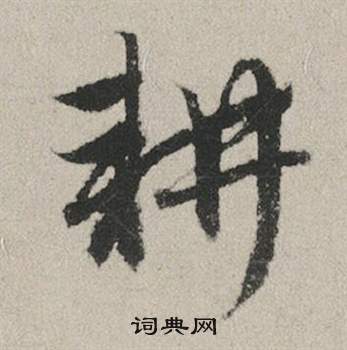 耕
词典网